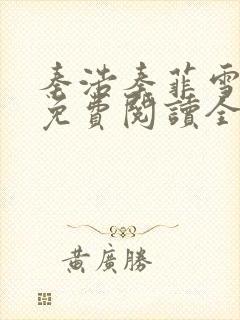 秦浩秦菲雪
免費閱讀全
黃廣勝